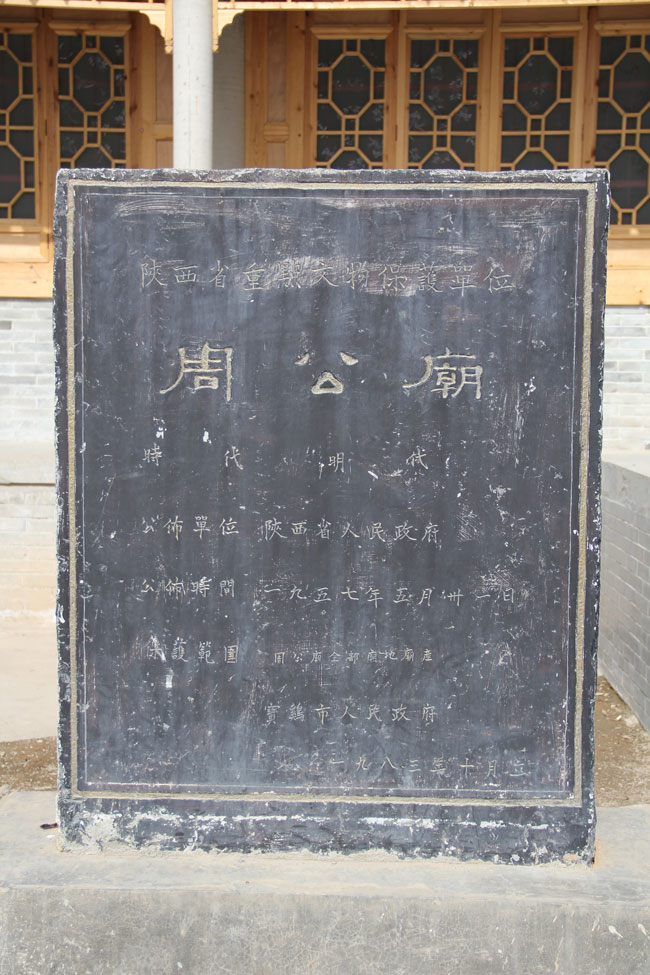 陝西省重點文物保護單位
周公廟
時代 明代
公佈單位 陝西省人民政府
公佈時間 一九五七年五月卅一日
保護範圍 周公廟全部廟地廟產
寶鷄市人民政府
一九八三年十月立